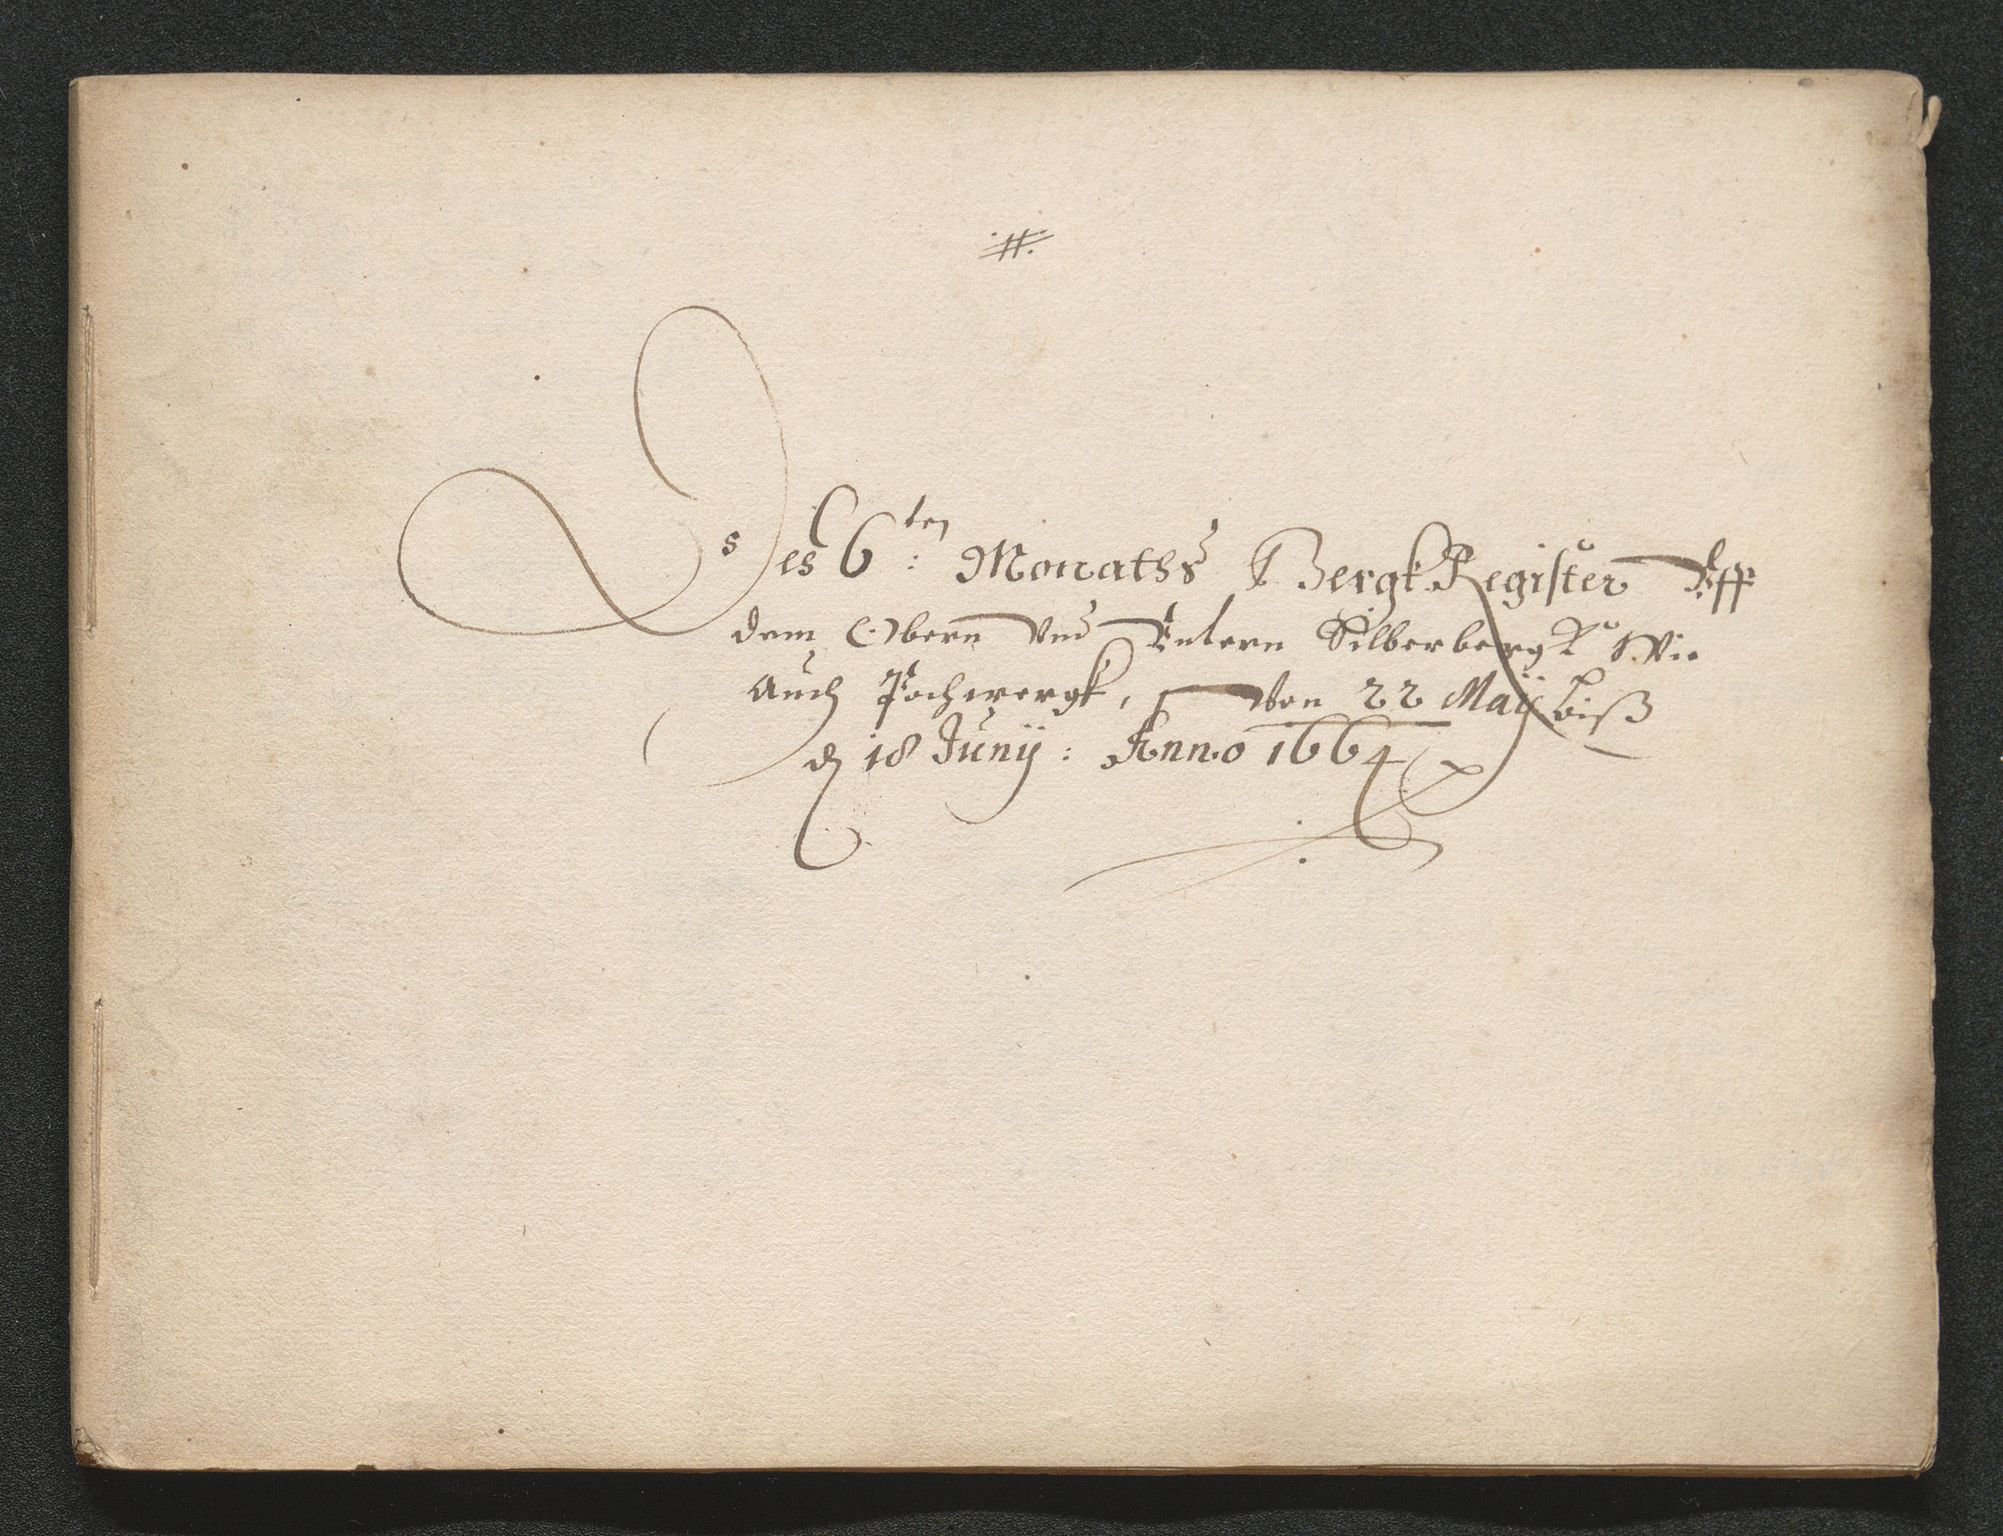 #
Des 6ten: Monaths BergkRegister Vff
dem Obern Vnd Vntern Silberbergk Wie
Auch Pochwergk, Von 22 Maÿ biß
d 18 Junÿ: Anno 1664